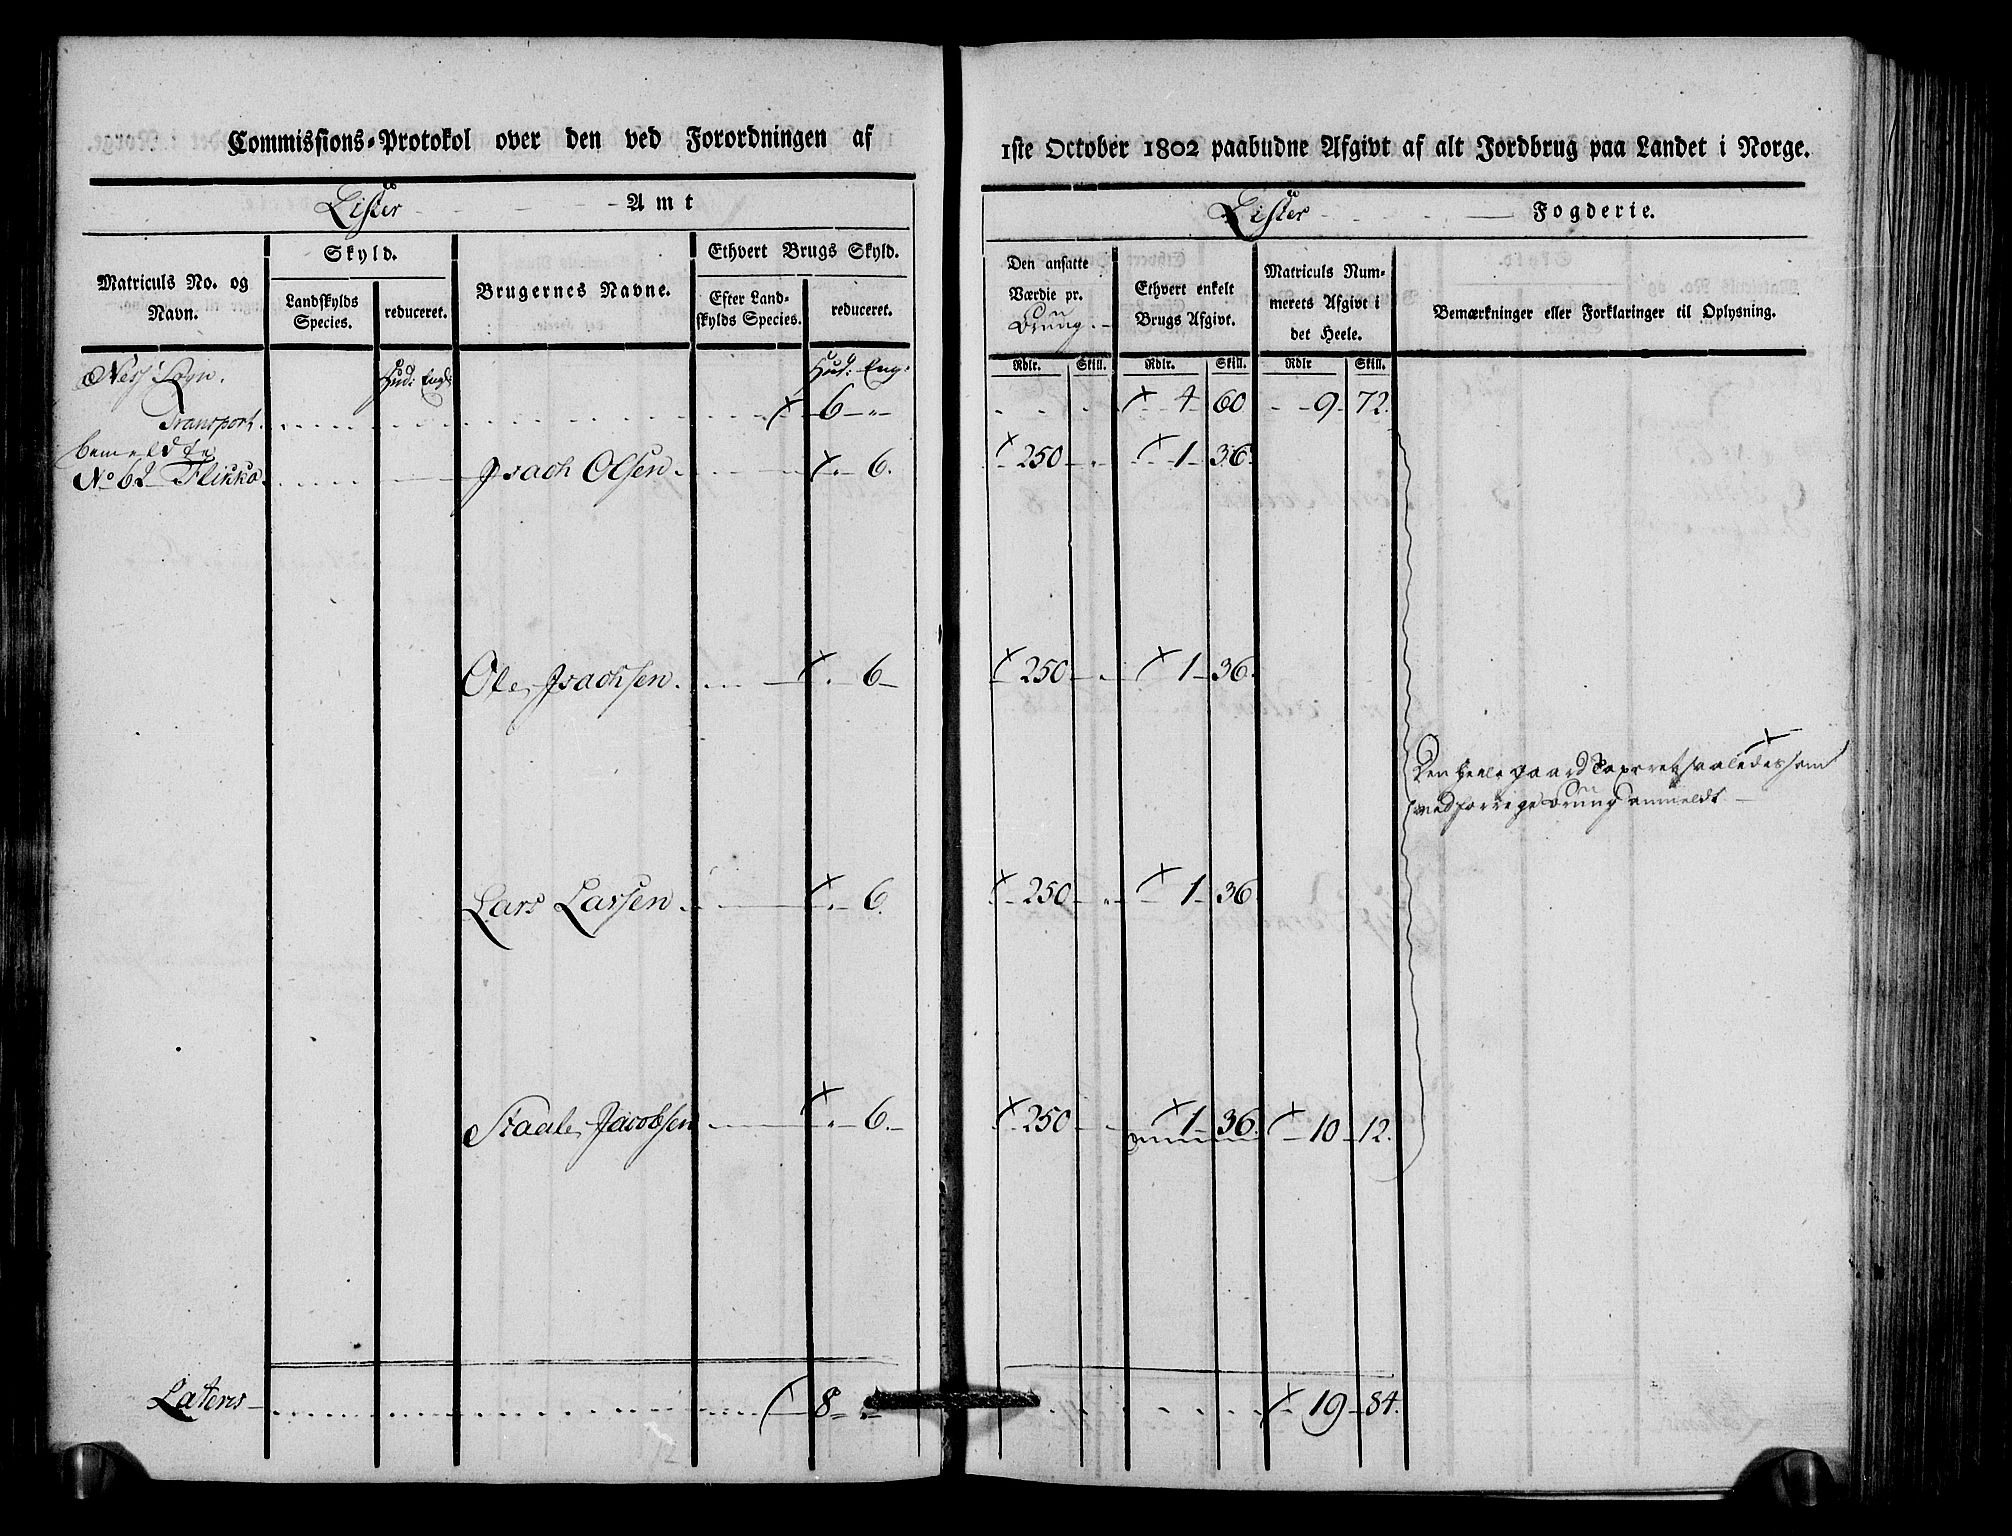 Commissions-Protokol over den ved Forordningen af
Lister Amt
Matriculs No. og Navn.
Skyld.
Landskylds Species.
reduceret.
Brugernes Navne.
Ethvert Brugs Skyld.
Efter Landskylds Species.
reduceret.
Ness Sogn.
Hud: Eng:
Hud: Eng:
Transport 6 "
bemeldte
No 62 Flikka Isach Olsen 6.
Ole Isachsen 6
Lars Larsen 6.
Staale Jacobsen 6
Lateris 8
1ste October 1802 paabudne Afgivt af alt Jordbrug paa Landet i Norge.
Lister Fogderie.
Den ansatte Værdie pr. Brug.
Ethvert enkelt Brugs Afgivt.
Matriculs Nummerets Afgivt i det Heele.
Bemærkninger eller Forklaringer til Oplysning.
Rdlr. Skill. Rdlr. Skill. Rdlr Skill.
4 60 9 72.
250 " 1 36.
250 " 1 36.
Den heele gaard taxeret saaledes som
ved forrige Brug anmeldt
250 " 1 36
250 1 36. 10 12.
19 84.